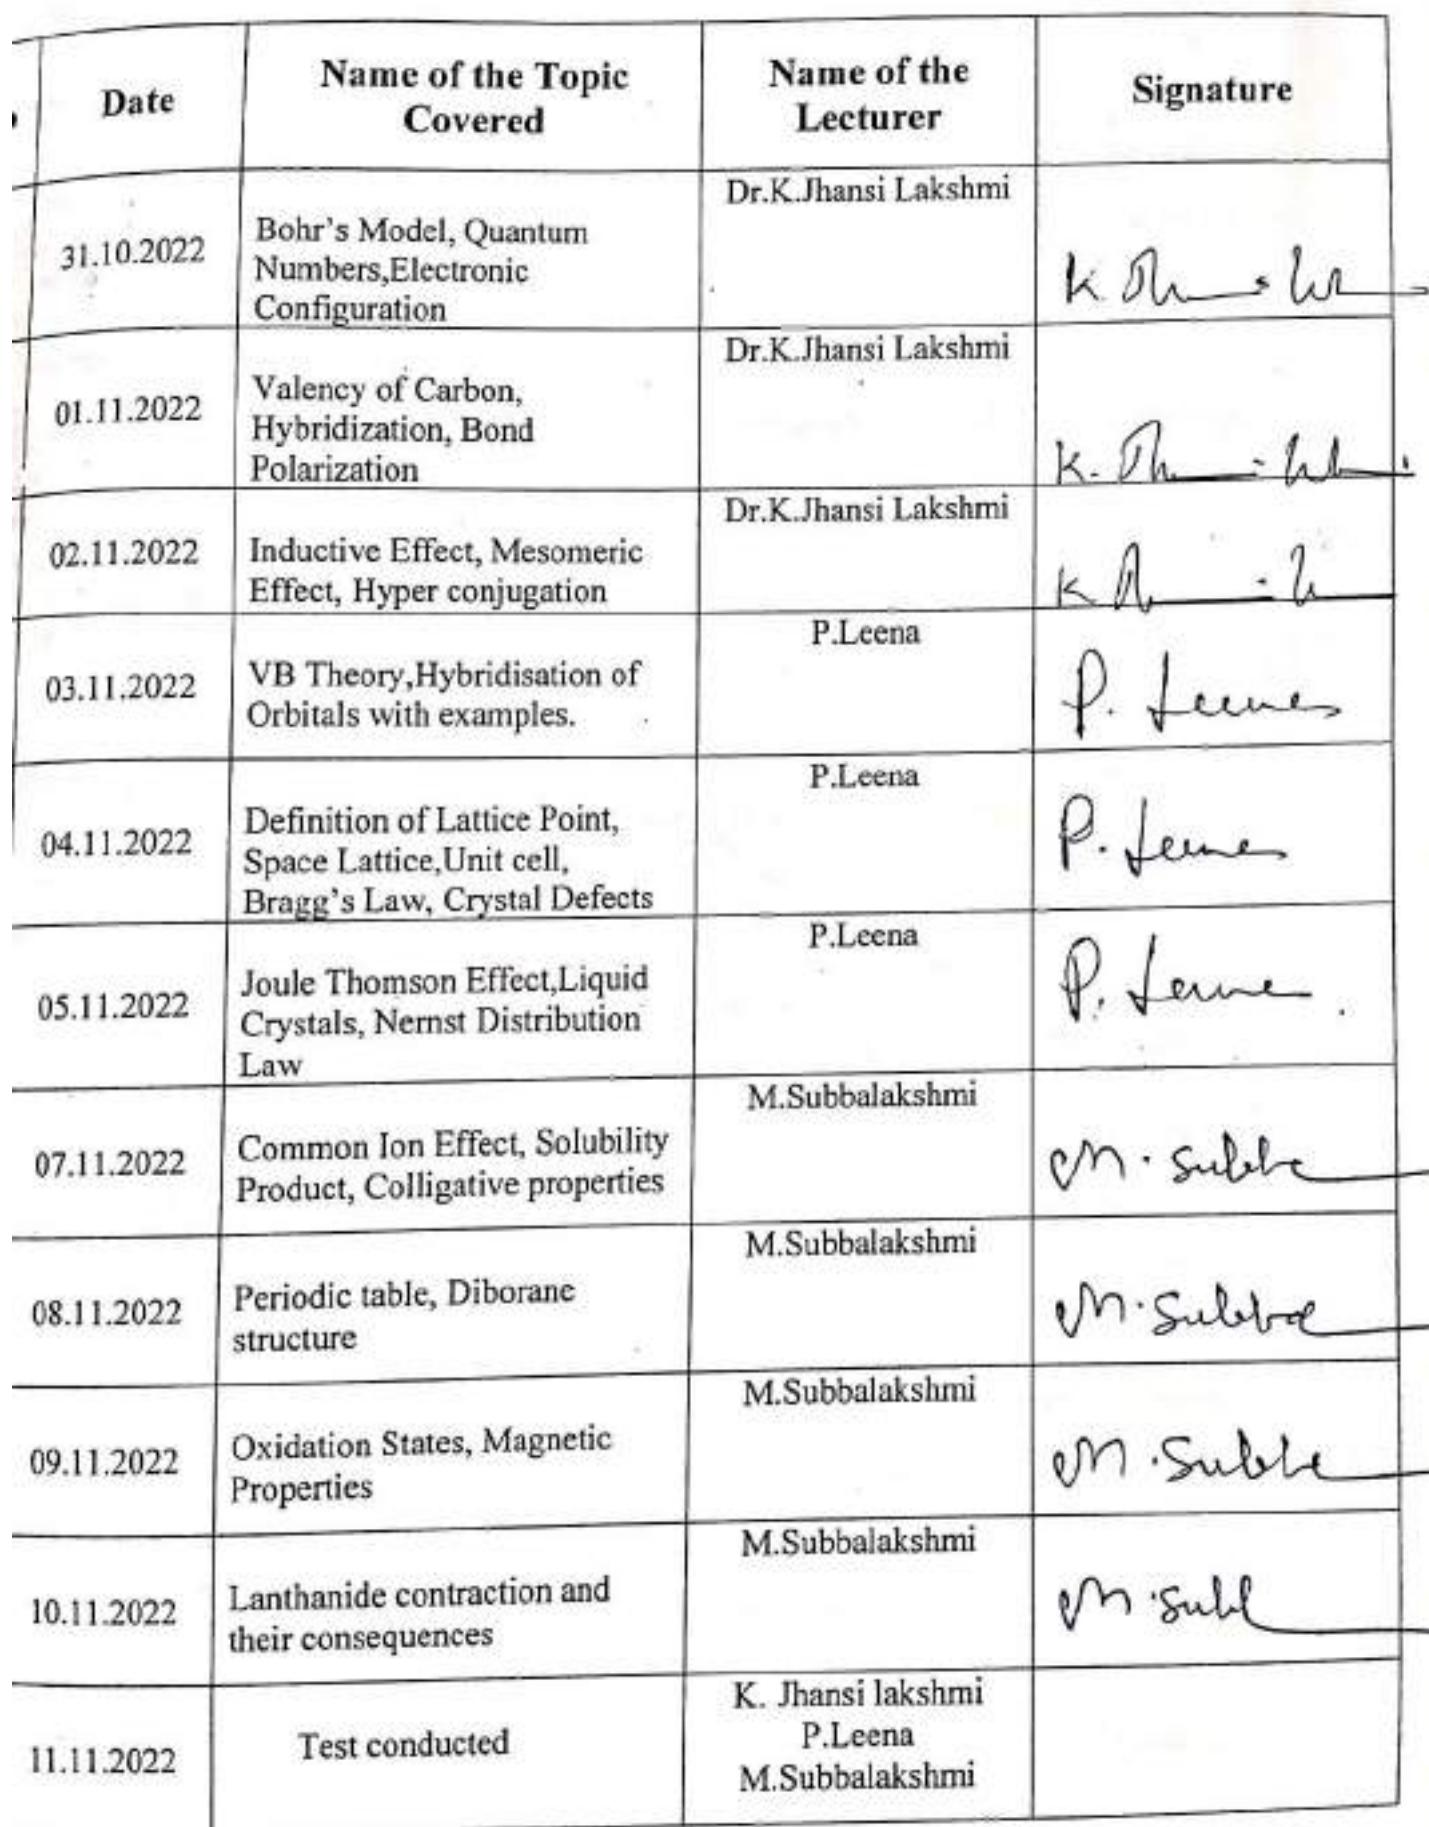 Date
Name of the Topic
Covered
Name of the
Lecturer
Signature
31.10.2022
Bohr's Model, Quantum
Numbers,Electronic
Configuration
Dr.K.Jhansi Lakshmi
K.
01.11.2022
Valency of Carbon,
Hybridization, Bond
Polarization
Dr.K.Jhansi Lakshmi
K.
02.11.2022
Inductive Effect, Mesomeric
Effect, Hyper conjugation
Dr.K.Jhansi Lakshmi
K
03.11.2022
VB Theory,Hybridisation of
Orbitals with examples.
P.Leena
P. Leena
04.11.2022
Definition of Lattice Point,
Space Lattice,Unit cell,
Bragg's Law, Crystal Defects
P.Leena
P. Leena
05.11.2022
Joule Thomson Effect,Liquid
Crystals, Nernst Distribution
Law
P.Leena
P. Leena
07.11.2022
Common Ion Effect, Solubility
Product, Colligative properties
M.Subbalakshmi
M. Subba
08.11.2022
Periodic table, Diborane
structure
M.Subbalakshmi
M. Subba
09.11.2022
Oxidation States, Magnetic
Properties
M.Subbalakshmi
M. Subba
10.11.2022
Lanthanide contraction and
their consequences
M.Subbalakshmi
M. Subb
11.11.2022
Test conducted
K. Jhansi lakshmi
P.Leena
M.Subbalakshmi